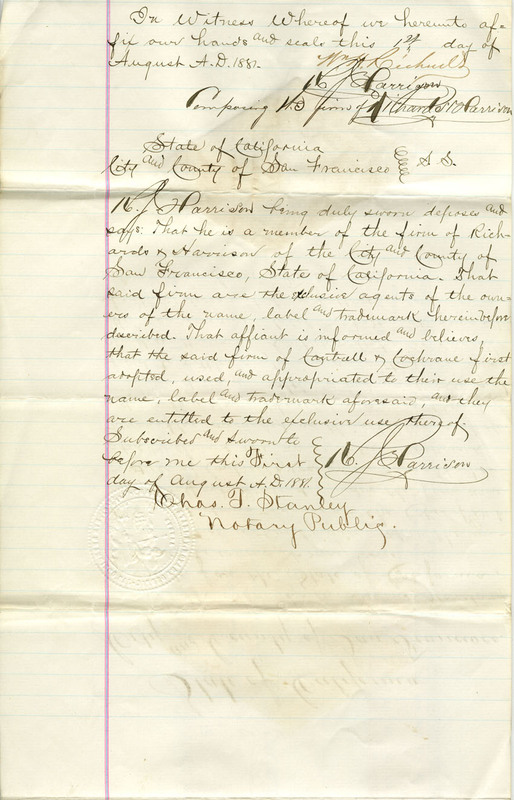 In Witness Whereof we hereunto af-
fix our hands and seals this 1st day of
August A.D. 1881.
R J Harrison
Composing the firm of Richards & Harrison
State of California
City and County of San Francisco } S.S.
R J Harrison being duly sworn deposes and
says: That he is a member of the firm of Rich-
ards & Harrison of the City and County of
San Francisco, State of California. That
said firm are the exclusive agents of the own-
ers of the name, label and trademark hereinbefore
described. That affiant is informed and believes
that the said firm of Cantrell & Cochrane first
adopted, used, and appropriated to their use the
name, label and trademark aforesaid, and they
are entitled to the exclusive use thereof.
Subscribed and sworn to
before me this First } R J Harrison
day of August A.D. 1881.
Chas. T. Stanley
Notary Public.